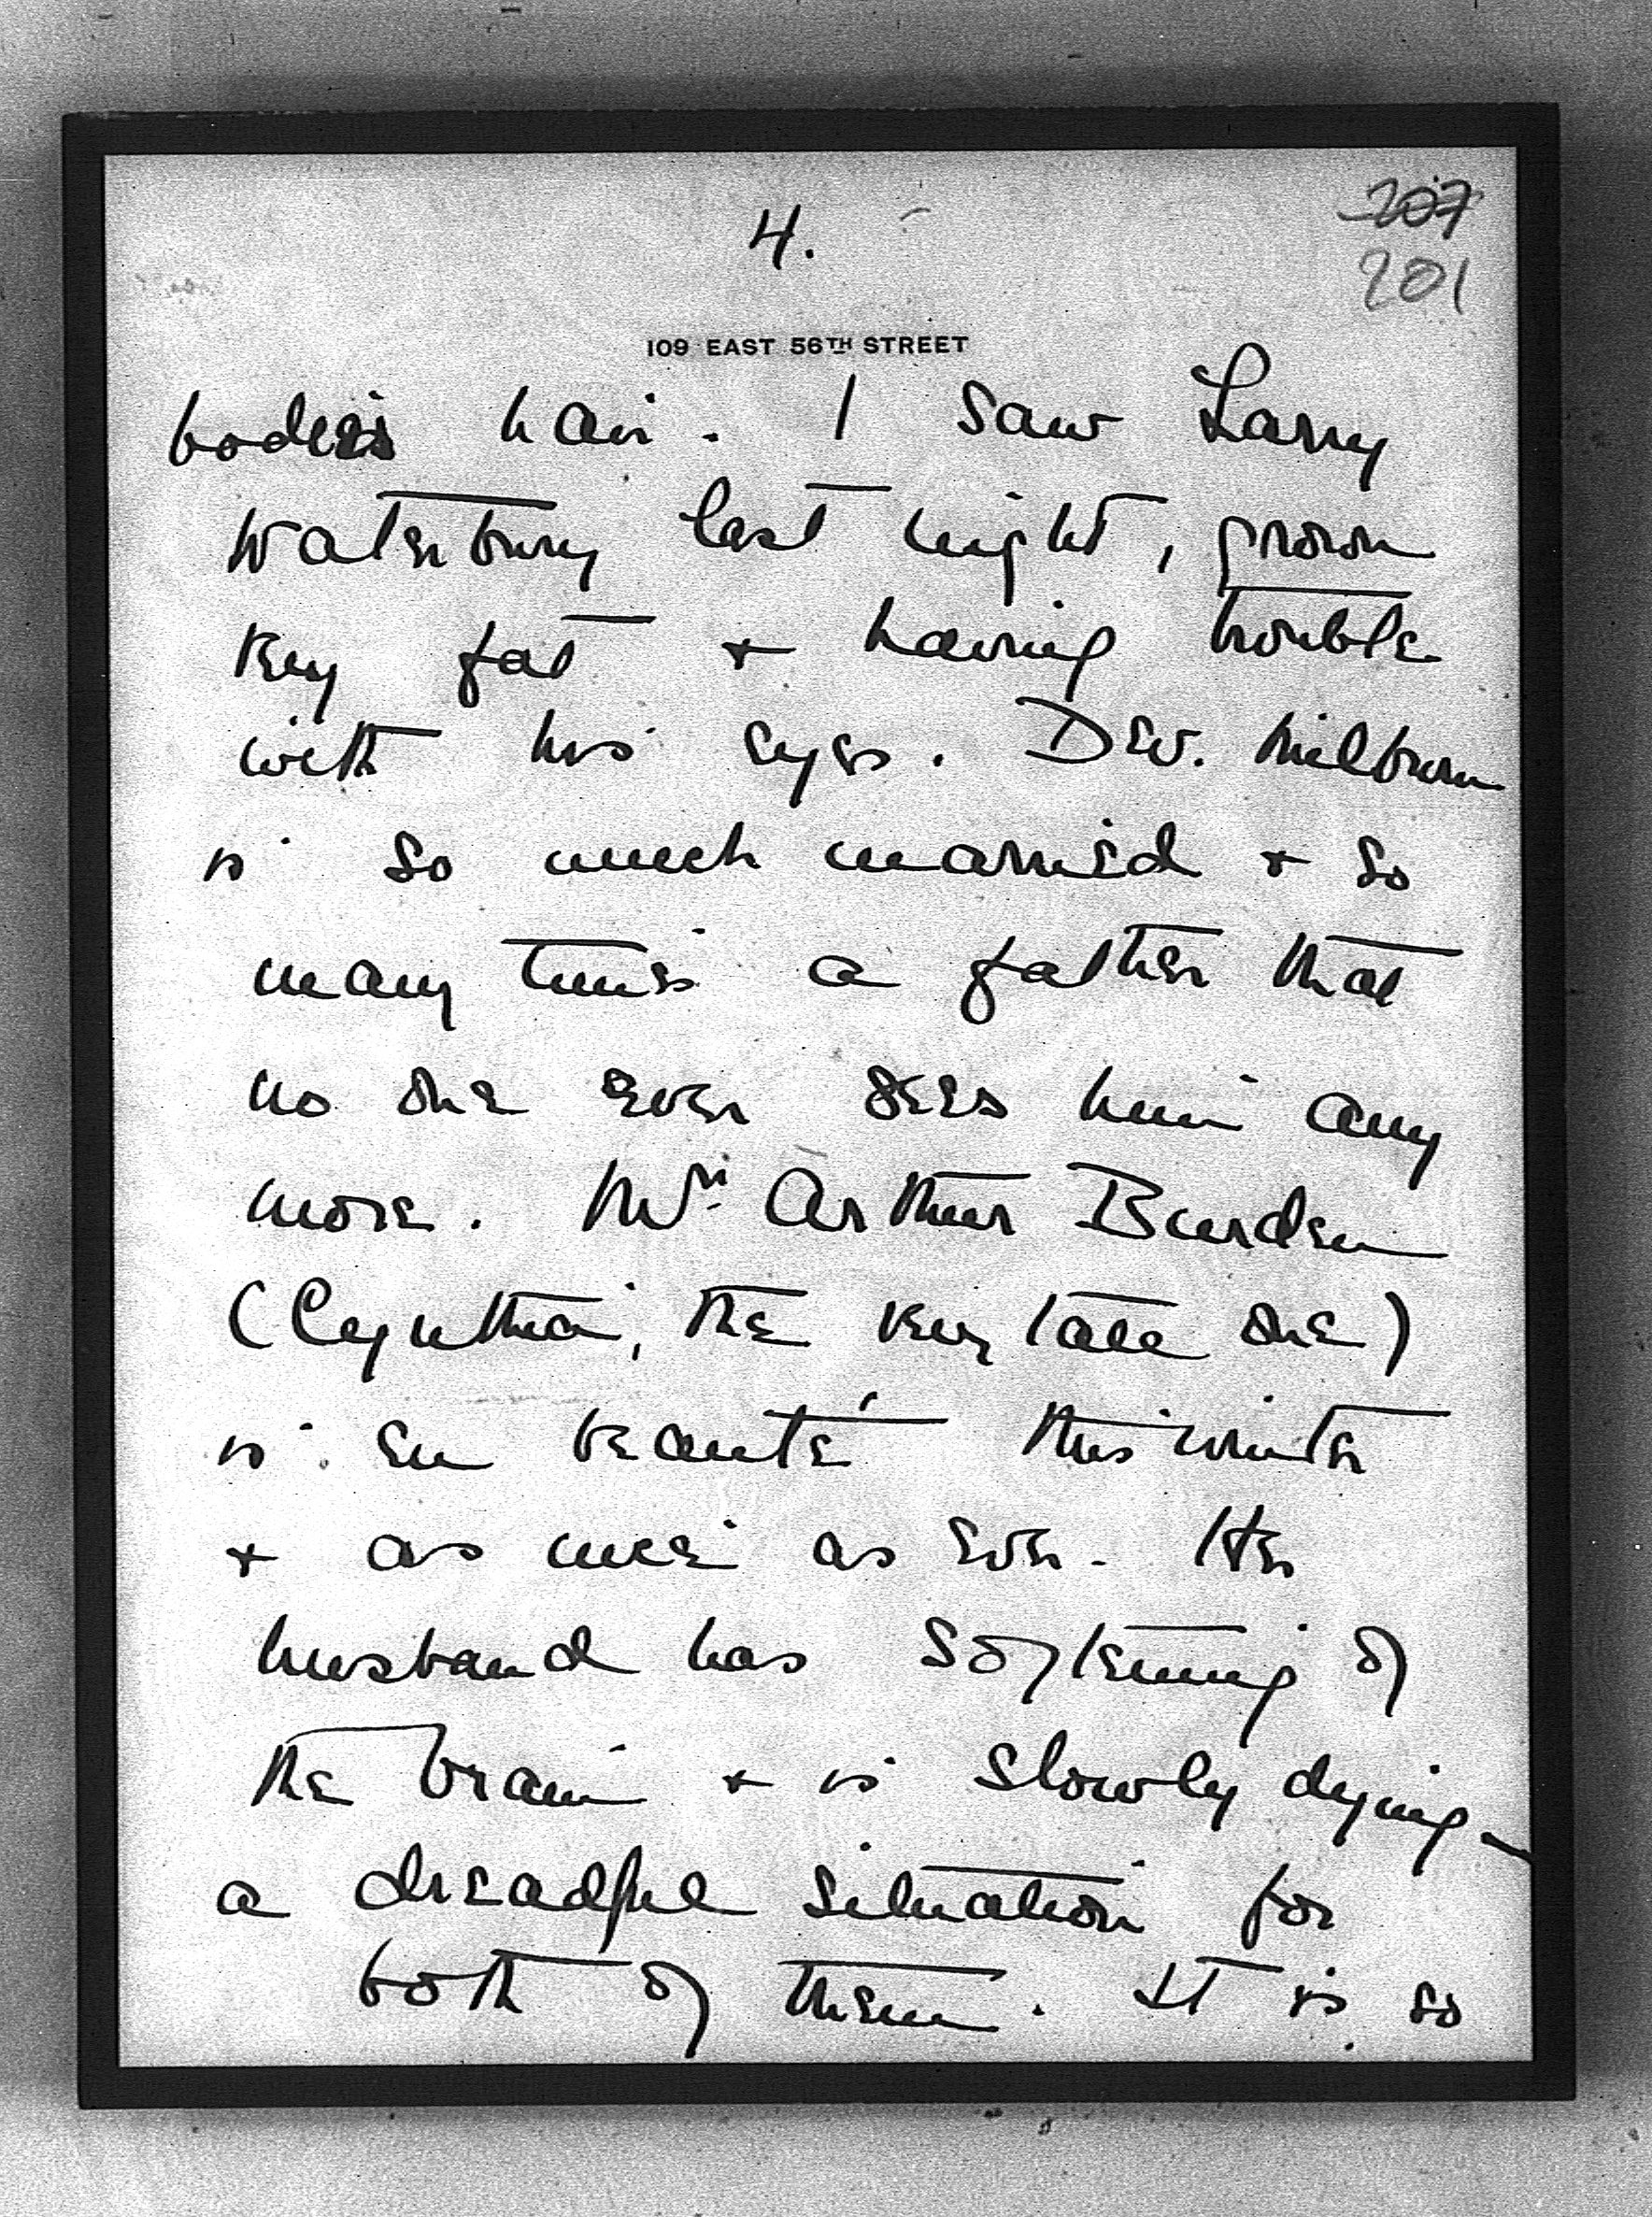 4.
207
201
109 EAST 56TH STREET
bodies hair. I saw Larry
Waterbury last night, grown
very fat + having trouble
with his eyes. Dev. Milburn
is so much married + so
many times a father that
no one ever sees him any
more. Mrs. Arthur Burden
(Cynthia, the very tall one)
is en beauté this winter
+ as nice as ever. Her
husband has softening of
the brain + is slowly dying -
a dreadful situation for
both of them. It is so